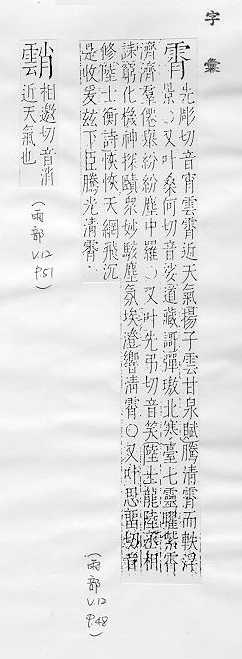 字彙
霄
先彫切音宵雲霄近天氣揚子雲甘泉賦騰清霄而軼浮
景○又叶桑何切音娑道藏謌彈璈北寒臺七靈曜紫霄
濟濟羣僊舉紛紛塵中羅○又叶先弔切音笑陸士龍陸丞相
誄窮化機神探賾衆妙駭塵氛埃澄響清霄○又叶思留切音
修陸士衡詩恢恢天網飛沉
是收爰茲下臣騰光清霄
(雨部 V.12 P.48)
相邀切音消
近天氣也
(雨部 V.12 P.51)